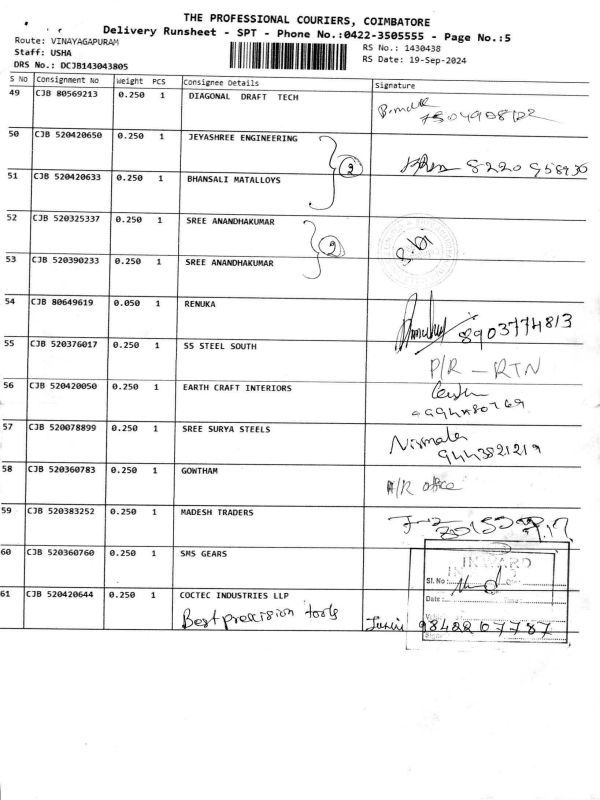 THE PROFESSIONAL COURIERS, COIMBATORE
Delivery Runsheet - SPT - Phone No.:0422-3505555 - Page No.:5
Route: VINAYAGAPURAM
Staff: USHA
DRS No.: DCJB143043805
RS No.: 1430438
RS Date: 19-Sep-2024
S No Consignment No Weight PCS Consignee Details Signature
49 CJB 80569213 0.250 1 DIAGONAL DRAFT TECH
50 CJB 520420650 0.250 1 JEYASHREE ENGINEERING 2 8220958936
51 CJB 520420633 0.250 1 BHANSALI MATALLOYS
52 CJB 520325337 0.250 1 SREE ANANDHAKUMAR 2
53 CJB 520390233 0.250 1 SREE ANANDHAKUMAR
54 CJB 80649619 0.050 1 RENUKA 8903774813
55 CJB 520376017 0.250 1 SS STEEL SOUTH P/R - RTN
56 CJB 520420050 0.250 1 EARTH CRAFT INTERIORS
57 CJB 520078899 0.250 1 SREE SURYA STEELS Nirmala
9443821219
58 CJB 520360783 0.250 1 GOWTHAM A/R office
59 CJB 520383252 0.250 1 MADESH TRADERS
60 CJB 520360760 0.250 1 SMS GEARS
INWARD
Sl. No :
Date :
Time :
61 CJB 520420644 0.250 1 COCTEC INDUSTRIES LLP
Best precision tools 9842207787